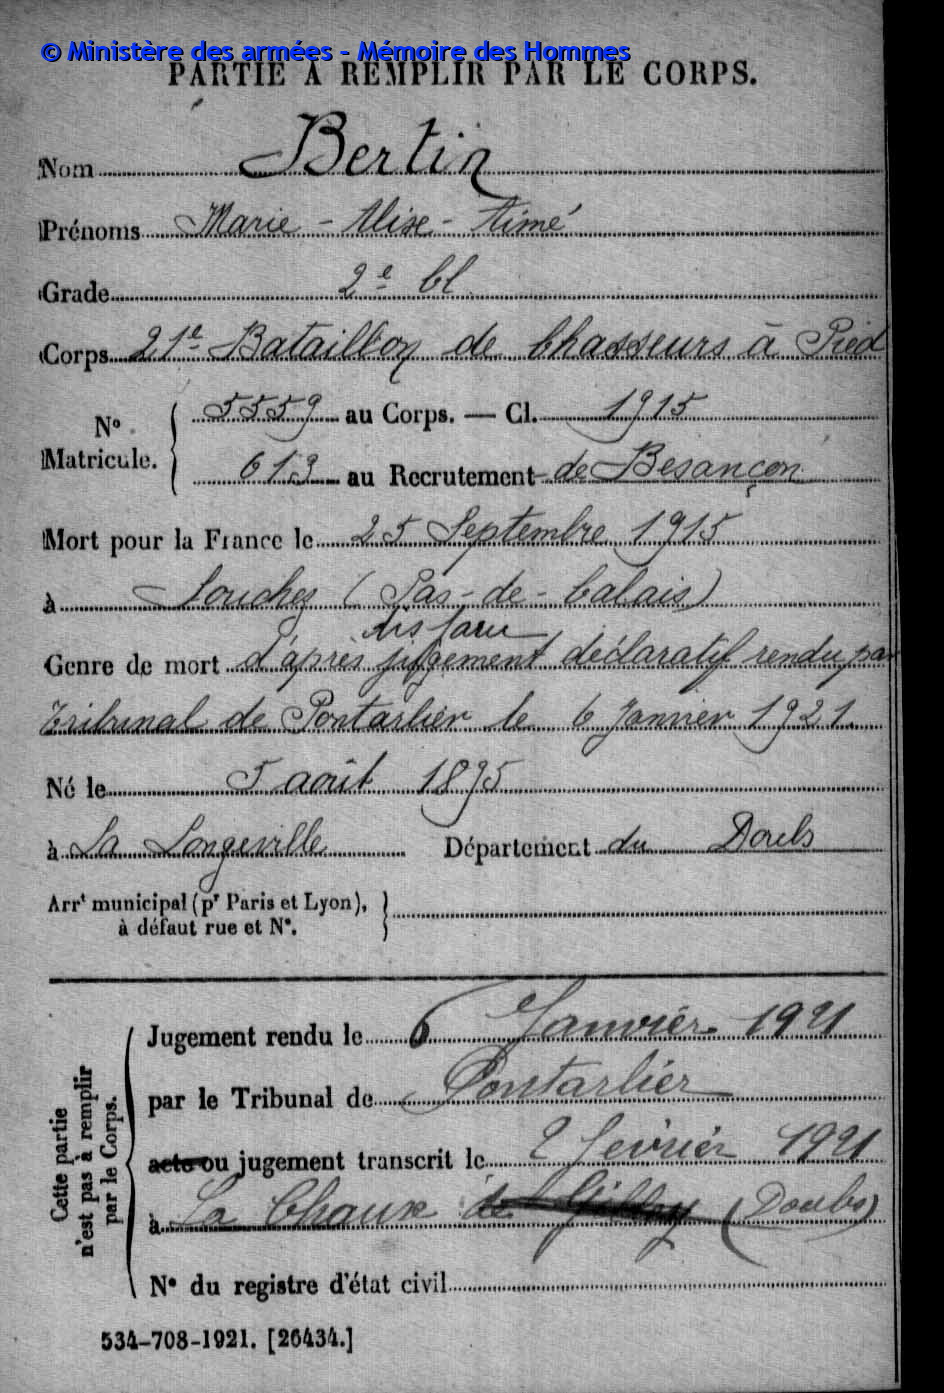 © Ministère des armées - Mémoire des Hommes
PARTIE À REMPLIR PAR LE CORPS.
Nom Bertin
Prénoms Marie - Alix - Aimé
Grade 2e Cl
Corps 21e Bataillon de Chasseurs à Pied
N° Matricule. 5559 au Corps. — Cl. 1915
613 au Recrutement de Besançon
Mort pour la France le 25 Septembre 1915
à Souchez (Pas-de-Calais)
disparu
Genre de mort d'après jugement déclaratif rendu par
Tribunal de Pontarlier le 6 Janvier 1921.
Né le 5 août 1895
à La Longeville Département du Doubs
Arrt municipal (pr Paris et Lyon),
à défaut rue et N°.
Cette partie
n'est pas à remplir
par le Corps.
Jugement rendu le 6 Janvier 1921
par le Tribunal de Pontarlier
acte ou jugement transcrit le 2 février 1921
à La Chaux de Gilley (Doubs)
N° du registre d'état civil
534-708-1921. [26434.]